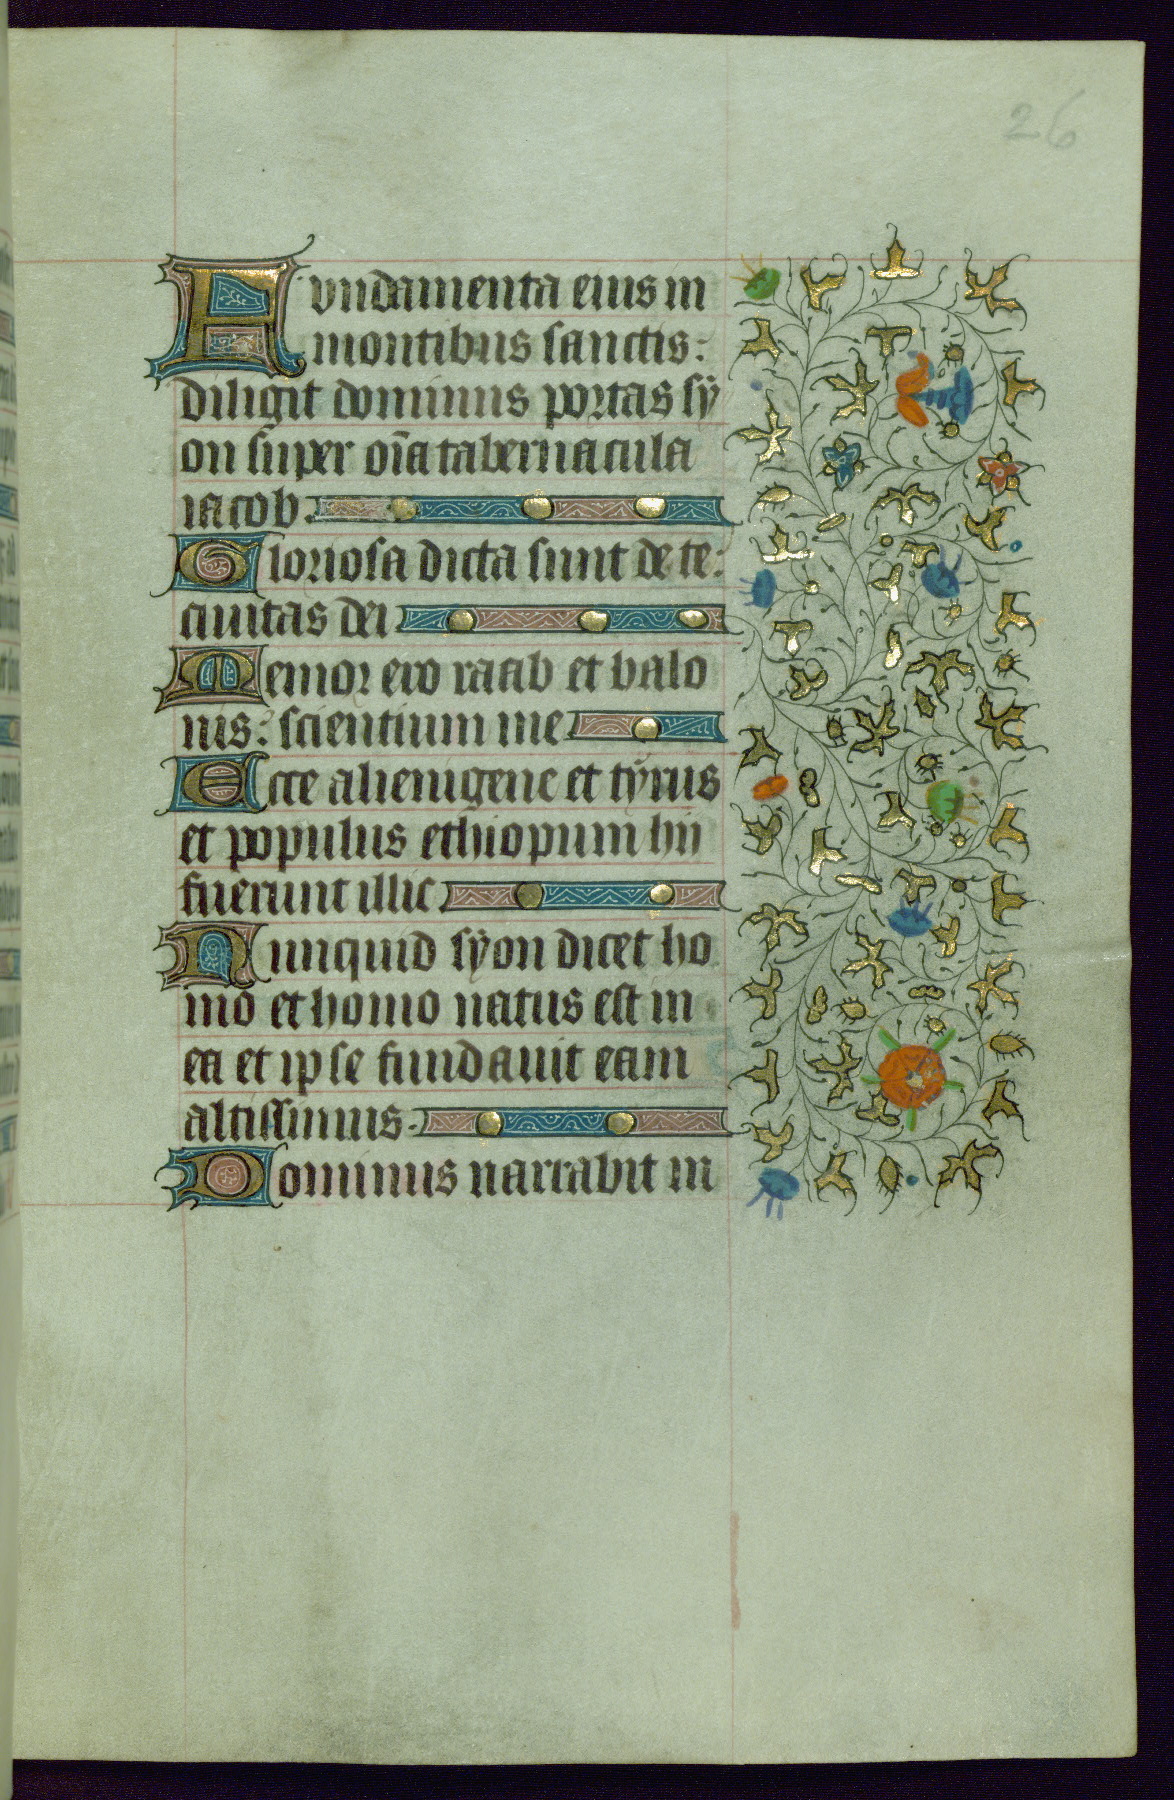 26
Fundamenta eius in
montibus sanctis:
diligit dominus portas sÿ
on super oīa tabernacula
iacob.
Gloriosa dicta sunt de te:
ciuitas dei
Memor ero raab et babilo
nis: scientium me
Ecce alienigene et tÿrus
et populus ethiopum hii
fuerunt illic
Nunquid sÿon dicet ho
mo et homo natus est in
ea et ipse fundauit eam
altissimus.
Dominus narrabit in